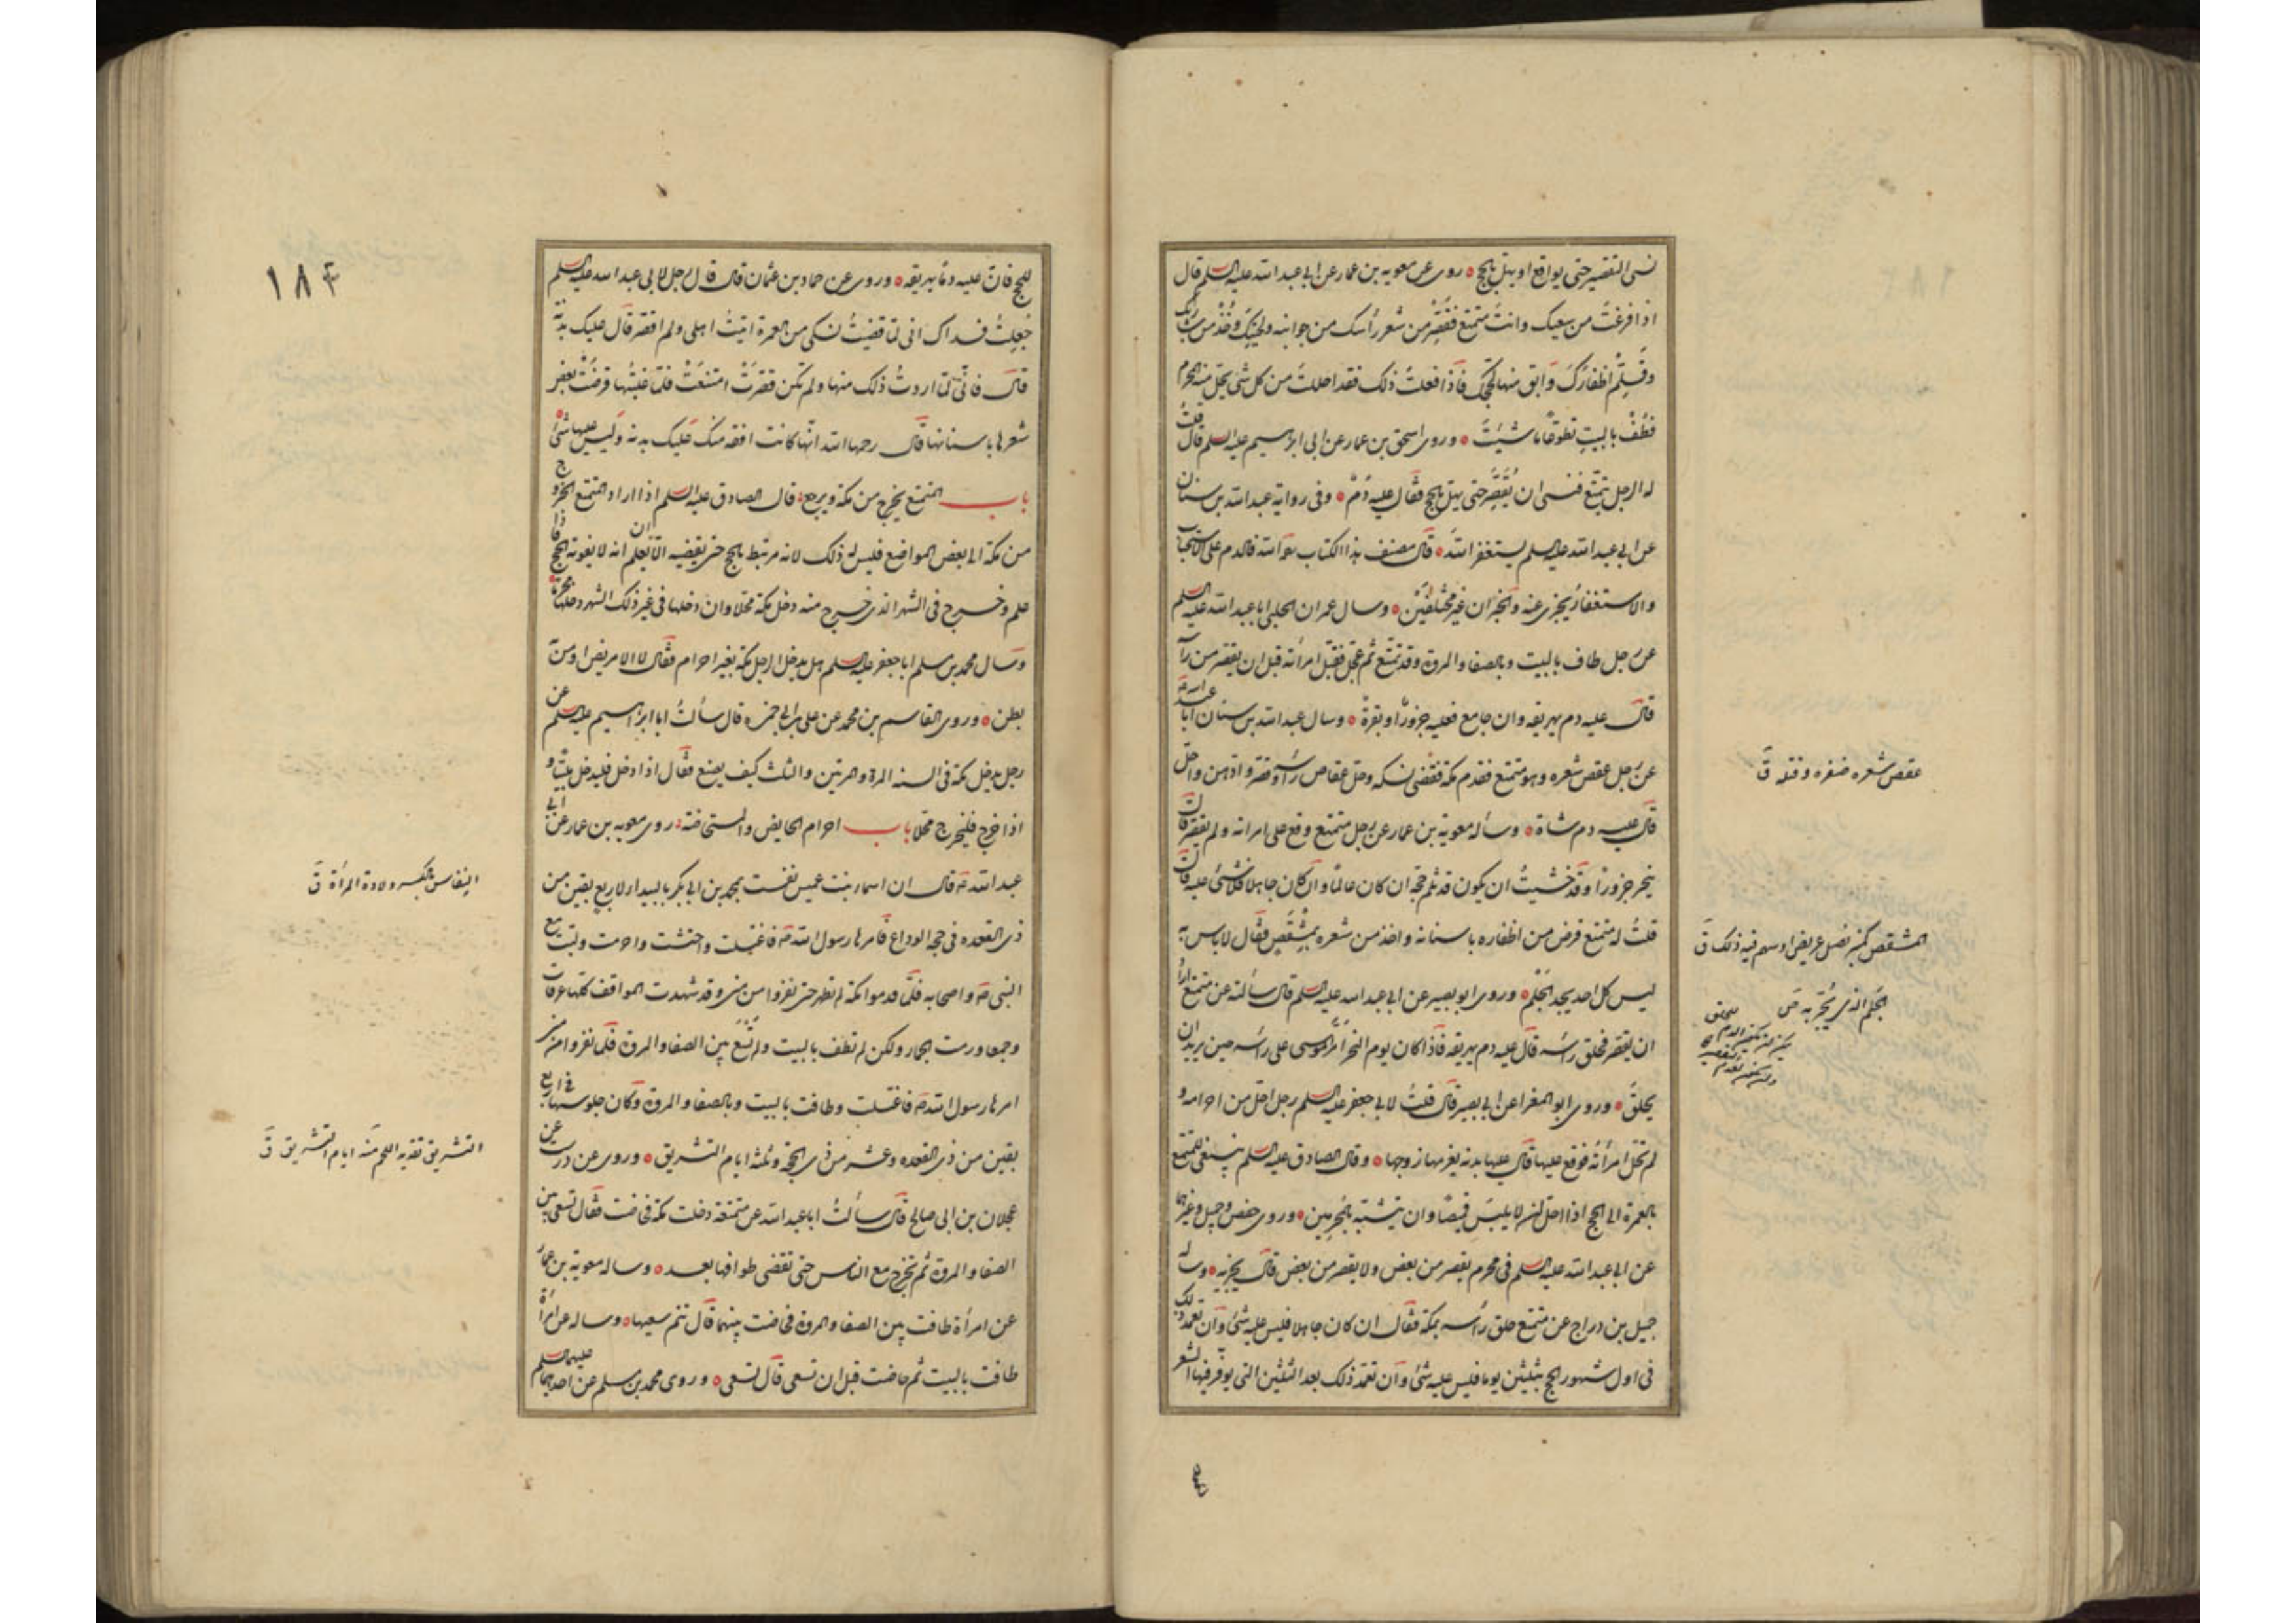 نسى التقصير حتى يواقع او يهل بالحج ه روى عن معوية بن عمار عن ابى عبد الله عليه السلم قال
اذا فرغتَ من سعيك وانتَ متمتع فقَصِّر من شعر رأسك من جوانبه ولحيتك وخُذْ من شاربك
وقَلِّمْ اظفاركَ وَابق منها لحجك فَاذا فعلتَ ذلك فقد احللتَ من كل شئ يحل منه المحرم
فَطُفْ بالبيت تطوعًا ما شئتَ ه وروى اسحق بن عمار عن ابى ابرهيم عليه السلم قال قلتُ
له الرجل يتمتع فنسى ان يُقَصِّر حتى يهل بالحج فقال عليه دمٌ ه وفى رواية عبد الله بن سنان
عن ابى عبد الله عليه السلم يستغفر الله ه قال مصنف هذا الكتاب رحمه الله فالدم على الاستحباب
والاستغفار يُجزى عنه والخبران غير مختلفين ه وسال عمران الحلبى ابا عبد الله عليه السلم
عن رجل طاف بالبيت وبالصفا والمروة وقد تمتع ثم عجّل فقبّل امرأته قبل ان يقصّر من رأسه
قال عليه دم يهريقه وان جامع فعليه جزورٌ او بقرةٌ ه وسال عبد الله بن سنان ابا عبد الله عـ
عن رجل عقص شعره وهو متمتع فقدم مكة فقضى نسكه وحل عقاص رأسه وقصّر وادهن واحلّ
قال عليه دم شاة ه وساله معوية بن عمار عن رجل متمتع وقع على امراته ولم يقصر قال
ينحر جزورًا وقد خشيتُ ان يكون قد ثلم حجه ان كان عالمًا وان كان جاهلا فلا شئ عليه قال
قلتُ له متمتع قرض من اظفاره باسنانه واخذ من شعره بِمِشْقَصٍ فقال لا باس به
ليس كل احد يجد الجَلَم ه وروى ابو بصير عن ابى عبد الله عليه السلم قال سألته عن متمتع اراد
ان يقصّر فحلق راسه قال عليه دم يهريقه فَاذا كان يوم النحر امَرَّ الموسى على راسه حين يريد ان
يحلق ه وروى ابو المغرا عن ابى بصير قال قلتُ لابى جعفر عليه السلم رجل احل من احرامه و
لم تحل امرأته فوقع عليها قال عليها بدنة يغرمها زوجها ه وقال الصادق عليه السلم ينبغى للمتمتع
بالعمرة الى الحج اذا احل ان لا يلبسَ قميصًا وان يتشبّه بالمحرمين ه وروى حفص وجميل وغيرهما
عن ابى عبد الله عليه السلم فى محرم يقصر من بعض ولا يقصر من بعض قال يجزيه ه وساله
جميل بن دراج عن متمتع حلق رأسه بمكة فقال ان كان جاهلا فليس عليه شئ وان تعمد ذلك
فى اول شهور الحج بثلثين يوما فليس عليه شئ وان تعمّد ذلك بعد الثلثين التى يوفر فيها الشعر
عقص شعره ضفره وفتله ق
المشقص كمنبر نصل عريض او سهم فيه ذلك ق
الجَلَم الذى يُجَزّ به ص
للحج فان عليه دمًا يهريقه ه وروى عن حماد بن عثمان قال قال رجل لابى عبد الله عليه السلم
جُعِلتُ فداك انى لمّا قضيتُ نسكى من العمرة اتيتُ اهلى ولم اقصّر قال عليك بدنة
قال فانّى لمّا اردتُ ذلك منها ولم تكن قصّرَتْ امتنعَتْ فلمّا غلبتُها قرضَتْ بعض
شعرها باسنانها فقال رحمها الله انّها كانت افقه منك عليك بدنة وليس عليها شئ ه
باب المتمتع يخرج من مكة ويرجع قال الصادق عليه السلم اذا اراد المتمتع الخروج
من مكة الى بعض المواضع فليس له ذلك لانه مرتبط بالحج حتى يقضيه الّا ان يعلم انه لا يفوته الحج فاذا
علم وخرج فى الشهر الذى خرج منه دخل مكة محلا وان دخلها فى غير ذلك الشهر دخلها محرمًا ه
وسال محمد بن مسلم ابا جعفر عليه السلم هل يدخل الرجل مكة بغير احرام فقال لا الا مريض او من به
بطن ه وروى القاسم بن محمد عن على بن ابى حمزه قال سألتُ ابا ابرهيم عليه السلم عن
رجل يدخل مكة فى السنه المرة والمرتين والثلث كيف يصنع فقال اذا دخل فليدخل ملبيًا و
اذا خرج فليخرج محلا باب احرام الحايض والمستحاضة روى معوية بن عمار عن ابى
عبد الله عـ قال ان اسماء بنت عميس نفست بمحمد بن ابى بكر بالبيداء لاربع بقين من
ذى القعده فى حجة الوداع فامرها رسول الله صـ فاغتسلت واحتشت واحرمت ولبت مع
النبى صـ واصحابه فلمّا قدموا مكة لم تطهر حتى نفروا من منى وقد شهدت المواقف كلها عرفات
وجمعا ورمت الجمار ولكن لم تطف بالبيت ولم تَسْعَ بين الصفا والمروة فلمّا نفروا من منى
امرها رسول الله صـ فاغتسلت وطافت بالبيت وبالصفا والمروة وكان جلوسها فى اربع
بقين من ذى القعده وعشر من ذى الحجة وثلثة ايام التشريق ه وروى عن درست عن
عجلان بن ابى صالح قال سألتُ ابا عبد الله عن متمتعة دخلت مكة فحاضت فقال تسعى بين
الصفا والمروة ثم تخرج مع الناس حتى تقضى طوافها بعد ه وساله معوية بن عمار
عن امرأة طافت بين الصفا والمروة فحاضت بينهما قال تتم سعيها ه وساله عن امرأة
طافت بالبيت ثم حاضت قبل ان تسعى قال تسعى ه وروى محمد بن مسلم عن احدهما عليهما السلم
النفاس بالكسر ولادة المرأة ق
التشريق تقديد اللحم منه ايام التشريق ق